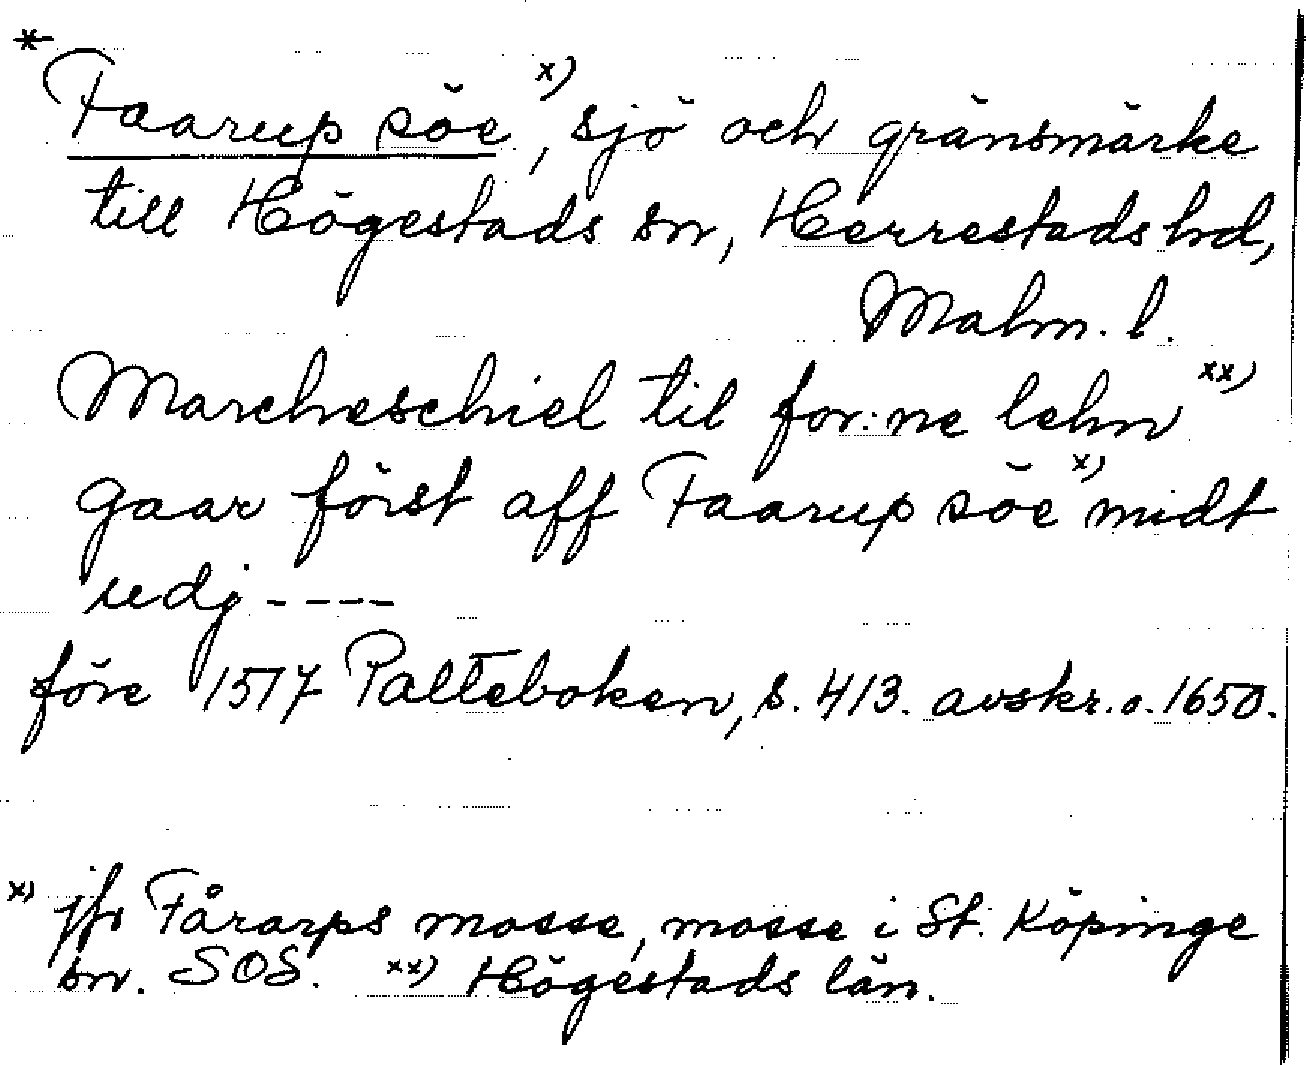 * Faarup söe x), sjö och gränsmärke
till Högestads sn, Herrestads hd,
Malm. l.
Marcheschiel til for:ne lehn xx)
gaar först aff Faarup söe x) midt
udj ----
före 1517 Palteboken, s. 413. avskr. o. 1650.
x) jfr Fårarps mosse, mosse i St. Köpinge
sn. SOS. xx) Högestads län.